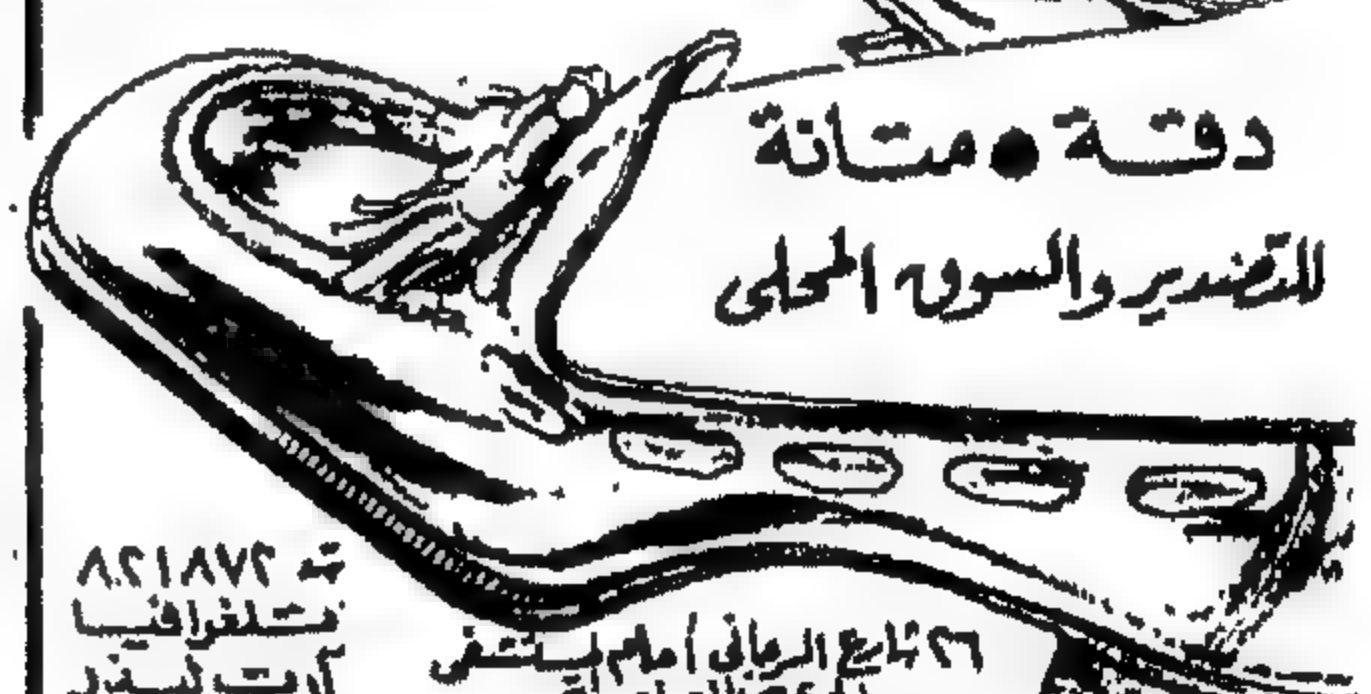 دقة • متانة
للتصدير والسوق المحلى
ت ٨٢١٨٧٢
تلغرافيا
آرت ليذر
٢٦ شارع الرمانى أمام مستشفى